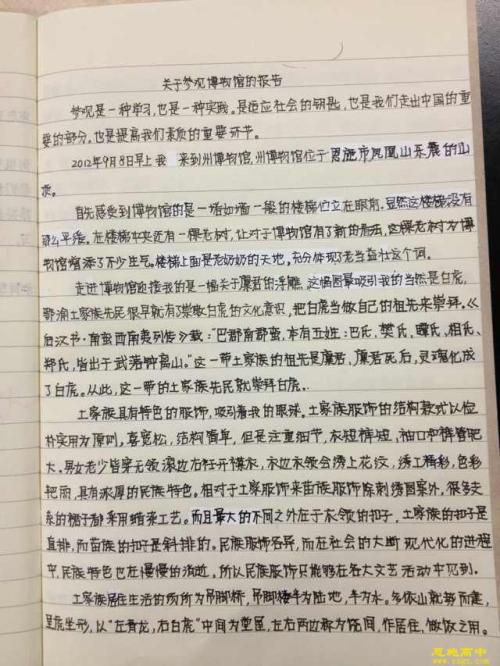 关于参观博物馆的报告
参观是一种学习,也是一种实践。是适应社会的钥匙,也是我们走出中国的重
要的部分。也是提高我们素质的重要环节。
2012年9月8日早上我 来到州博物馆,州博物馆位于恩施市凤凰山东麓的山
坡。
首先感受到博物馆的是一墙如墙一般的楼梯伫立在眼前,虽然这楼梯没有
那么平缓。在楼梯中央还有一棵老树,让对于博物馆有了新的看法,这棵老树为博
物馆增添了不少生气。楼梯上面是老奶奶的天地,充分体现老当益壮这个词。
走进博物馆迎接我的是一幅关于廪君的浮雕,这幅图案吸引我的当然是白虎,
鄂渝土家族先民很早就有了崇敬白虎的文化意识,把白虎当做自己的祖先来崇拜。《
后汉书·南蛮西南夷列传》载:"巴郡南郡蛮,本有五姓:巴氏,樊氏,瞫氏,相氏,
郑氏,皆出于武落钟离山。"这一带土家族的祖先是廪君,廪君死后,灵魂化成
了白虎。从此,这一带的土家族先民就崇拜白虎.
土家族具有特色的服饰,吸引着我的眼球。土家族服饰的结构款式以俭
朴实用为原则,喜宽松,结构简单,但是注重细节,衣短裤短,袖口和裤管肥
大。男女老少皆穿无领滚边右衽开襟衣,衣边衣领会绣上花纹,绣工精彩,色彩
艳丽,具有浓厚的民族特色。相对于土家服饰来苗族服饰除刺绣图案外,很多
的裙子都采用蜡染工艺。而且最大的不同之外在于衣领的扣子,土家族的扣子是
直排,而苗族的扣子是斜排的。民族服饰各异,而在社会的大断现代化的进程
中,民族特色也在慢慢的消逝,所以民族服饰只能够在各大文艺活动中见到。
土家族居住生活的场所为吊脚桥,吊脚楼半为陆地,半为水。多依山就势而建,
呈虎坐形,以"左青龙,右白虎"中间为堂屋,左右两边称为饶间,作居住,做饭之用。
恩施高中